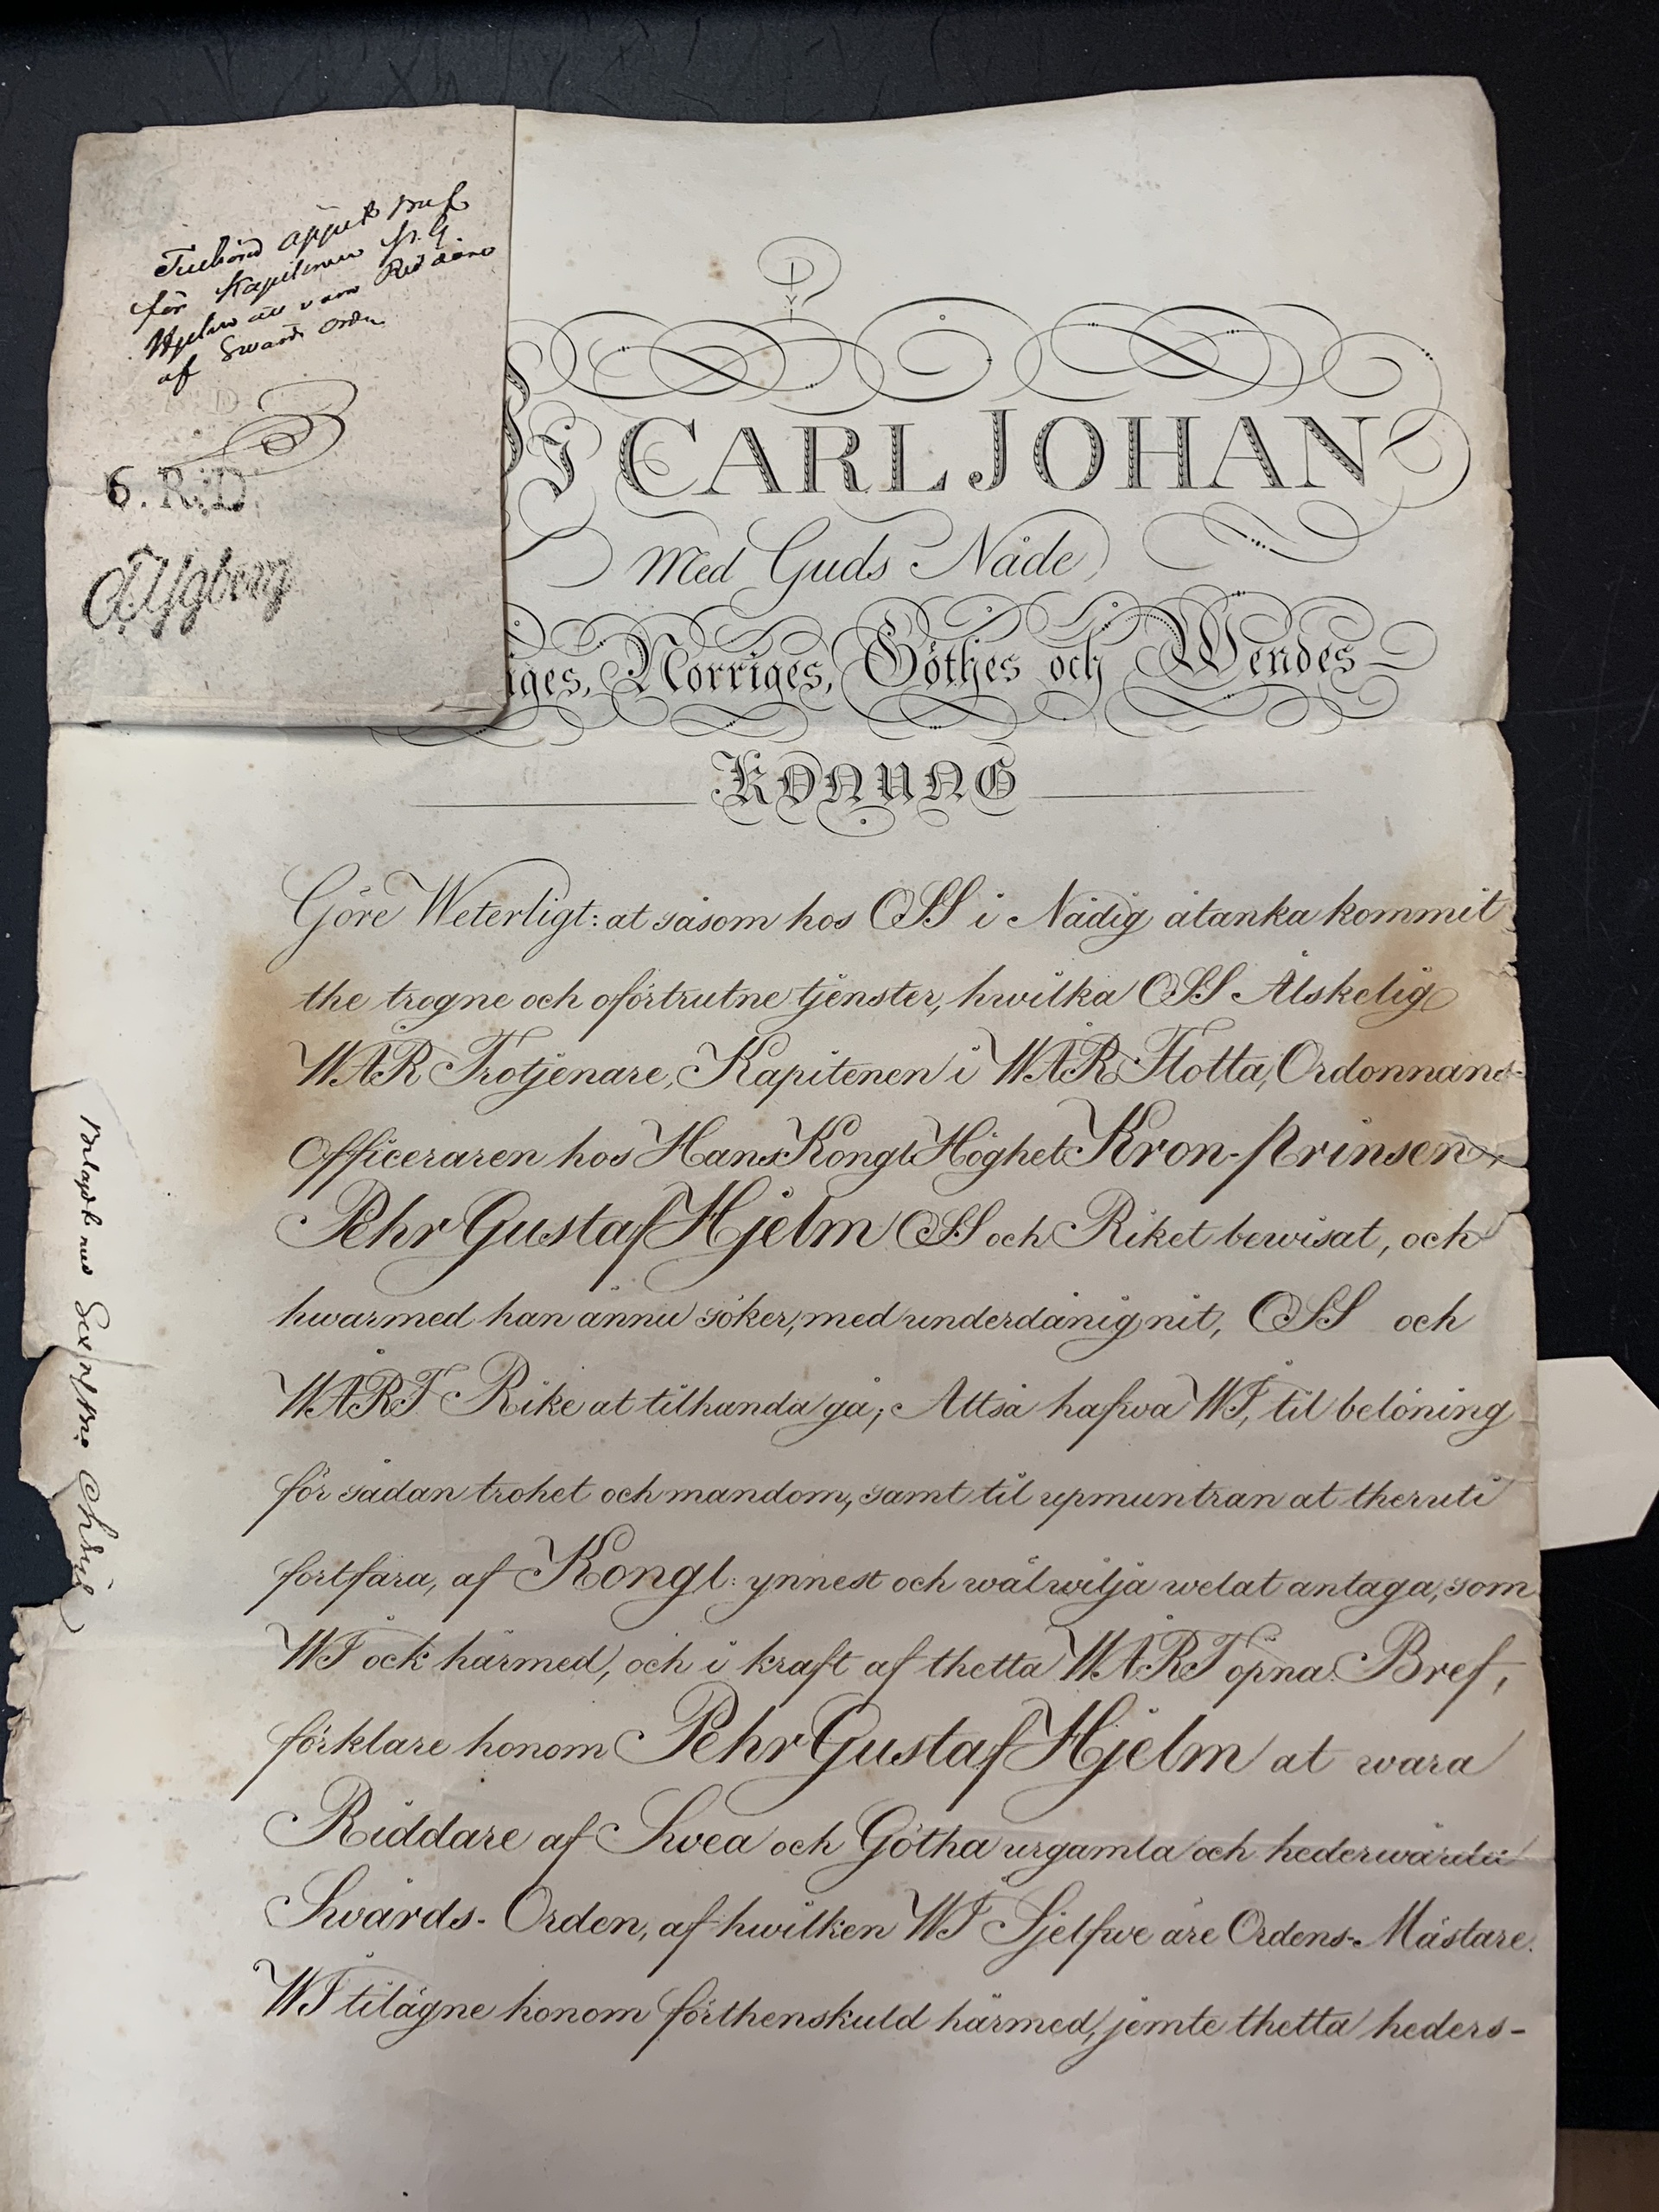 Tilhörer öppet Bref
för Kapitenen P. G.
Hjelm att vara Riddare
af Swärds Orden
6. R:D
WI CARL JOHAN
Med Guds Nåde,
iges, Norriges, Göthes och Wendes
KONUNG
Göre Weterligt: at såsom hos OSS i Nådig åtanka kommit
the trogne och oförtrutne tjenster, hwilka OSS Älskelig
WÅR Trotjenare, Kapitenen i WÅR Flotta, Ordonnans-
Officeraren hos Hans Kongl Höghet Kron-Prinsen,
Pehr Gustaf Hjelm OSS och Riket bewisat, och
hwarmed han ännu söker, med underdånig nit, OSS och
WÅRT Rike at tilhanda gå; Altså hafwa WI, til belöning
för sådan trohet och mandom, samt til upmuntran at theruti
fortfara, af Kongl: ynnest och wälwilja welat antaga, som
WI ock härmed, och i kraft af thetta WÅRT öpna Bref,
förklare honom Pehr Gustaf Hjelm at wara
Riddare af Swea och Götha urgamla och hederwärda
Swärds-Orden, af hwilken WI Sjelfwe äre Ordens-Mästare.
WI tilägne honom förthenskuld härmed, jemte thetta heders-